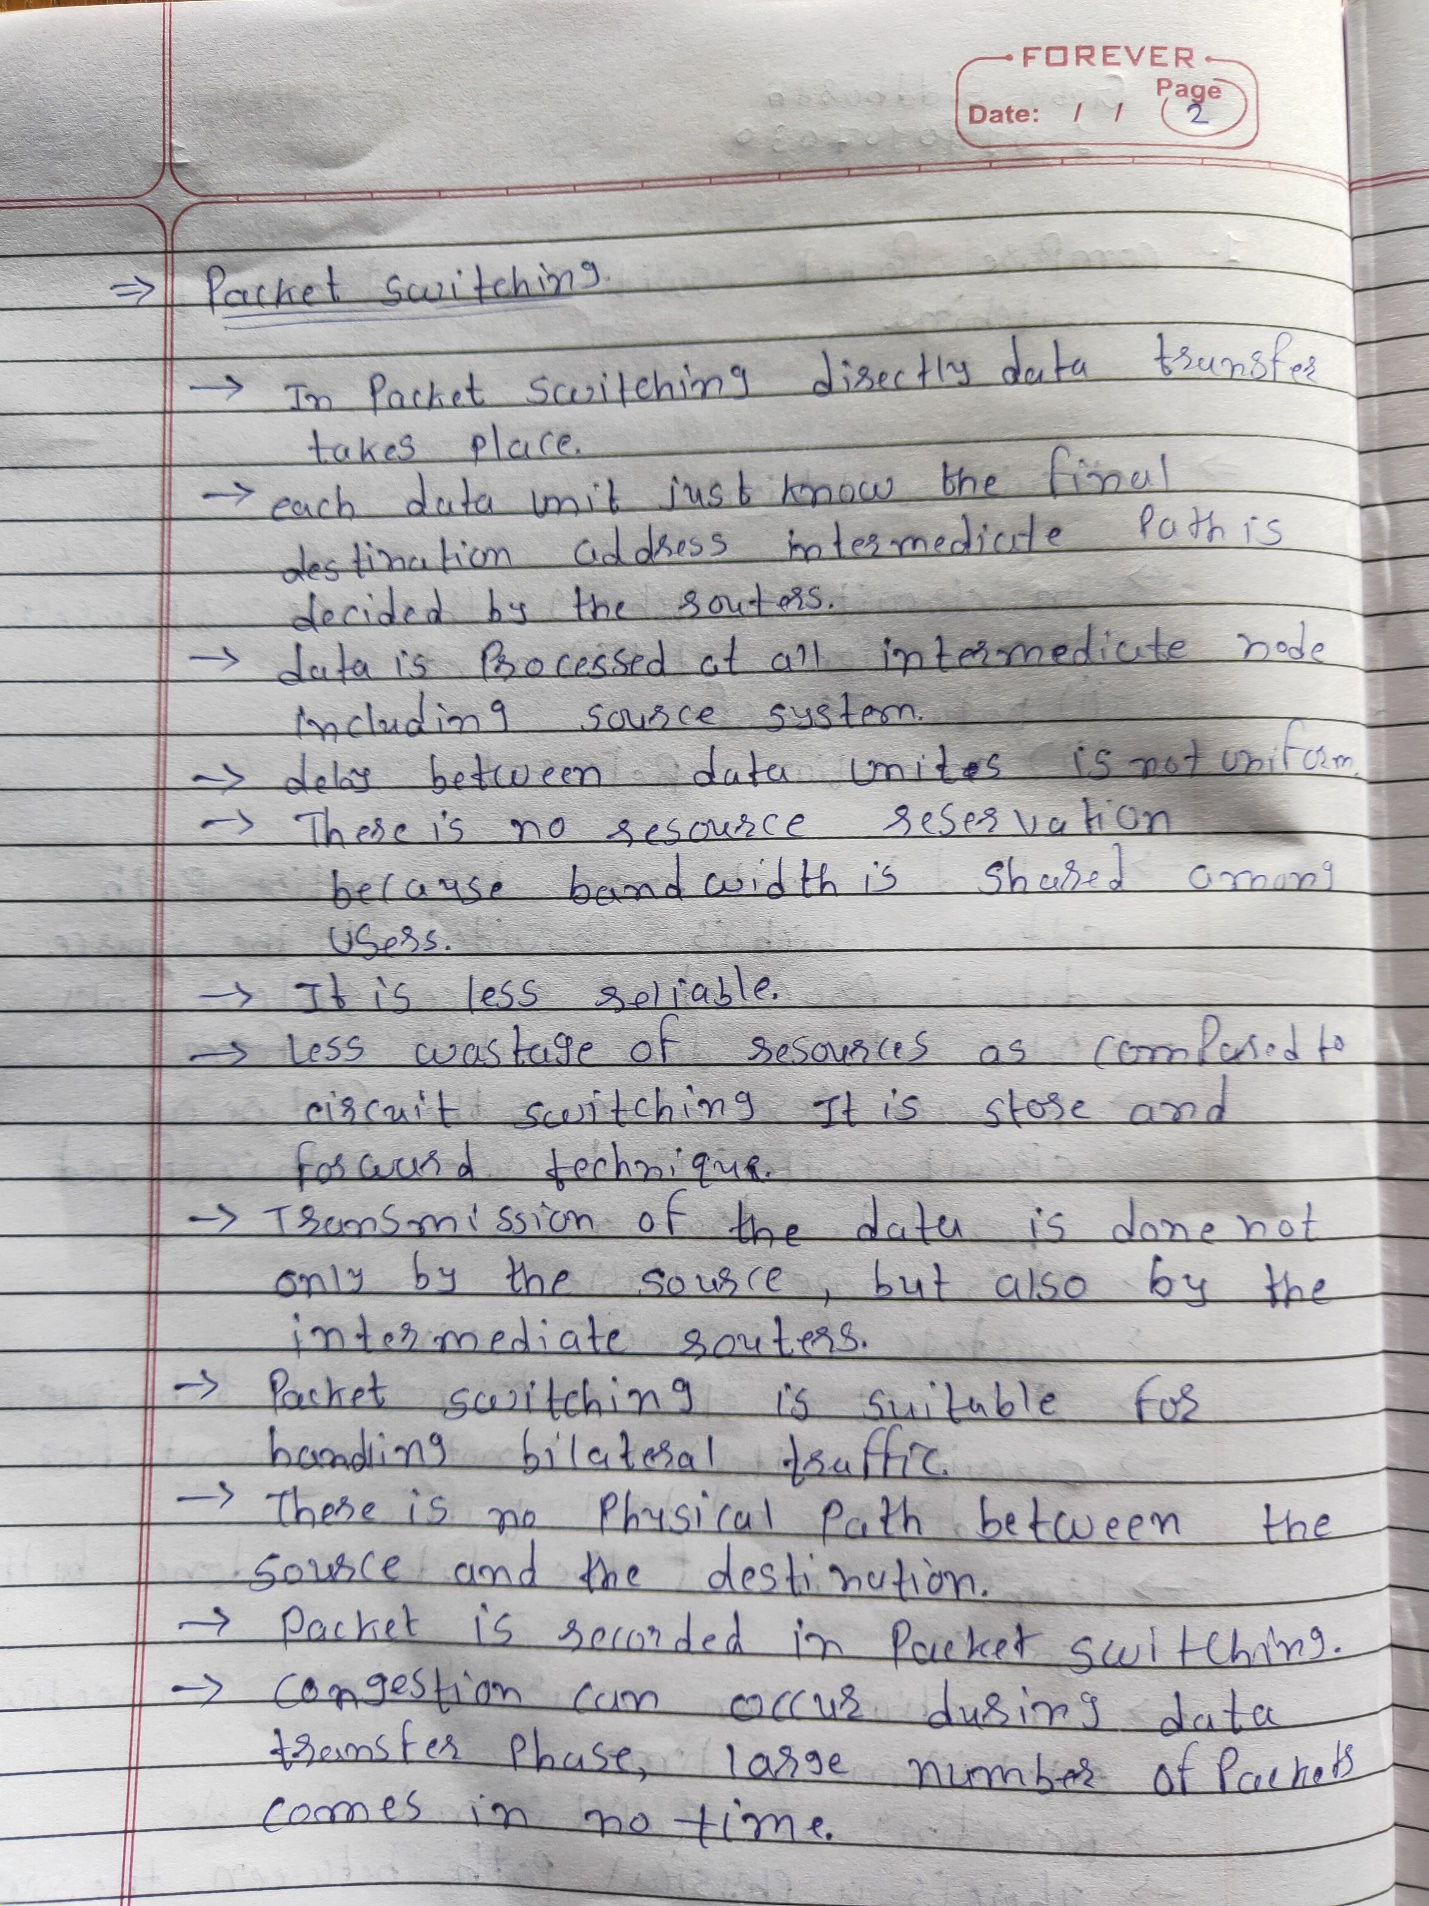 FOREVER
Page
Date: / / 2
⇒ Packet switching.
→ In Packet switching directly data transfer
takes place.
→ each data unit just know the final
destination address intermediate Path is
decided by the routers.
→ data is Processed at all intermediate node
including source system.
→ delay between data unites is not uniform.
→ There is no resource reservation
because bandwidth is shared among
users.
→ It is less reliable.
→ Less wastage of resources as compared to
circuit switching It is store and
forward technique.
→ Transmission of the data is done not
only by the source, but also by the
intermediate routers.
→ Packet switching is suitable for
handling bilateral traffic.
→ There is no Physical Path between the
source and the destination.
→ Packet is recorded in Packet switching.
→ congestion can occur during data
transfer Phase, large number of Packets
comes in no time.